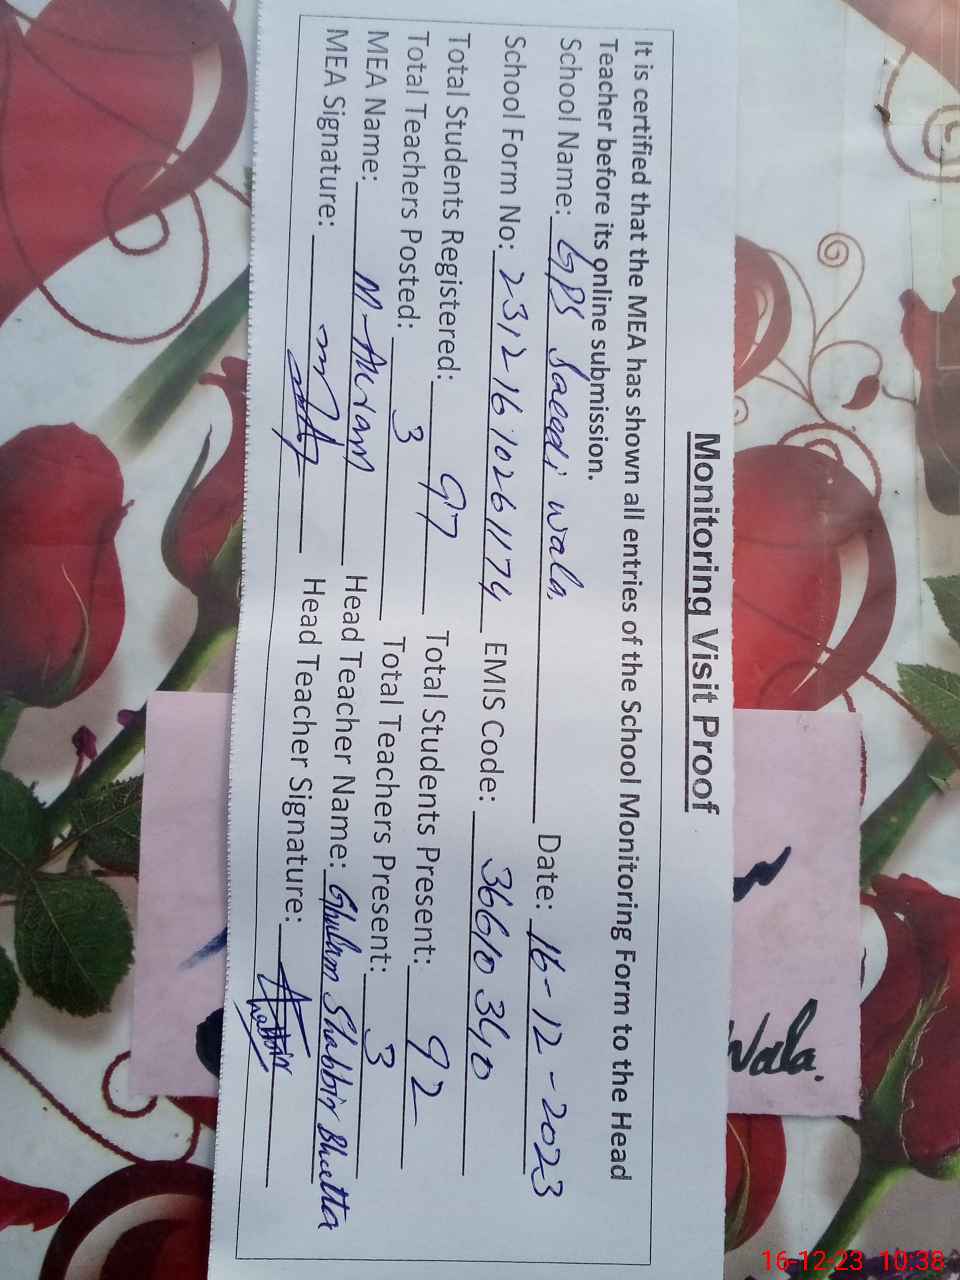 Monitoring Visit Proof
It is certified that the MEA has shown all entries of the School Monitoring Form to the Head
Teacher before its online submission.
School Name: GPS Saeedi wala Date: 16-12-2023
School Form No: 23121610261174 EMIS Code: 36610340
Total Students Registered: 97 Total Students Present: 92
Total Teachers Posted: 3 Total Teachers Present: 3
MEA Name: M-Akram Head Teacher Name: Ghulam Shabbir Bhutta
MEA Signature: Head Teacher Signature:
Wala.
16-12-23 10:38